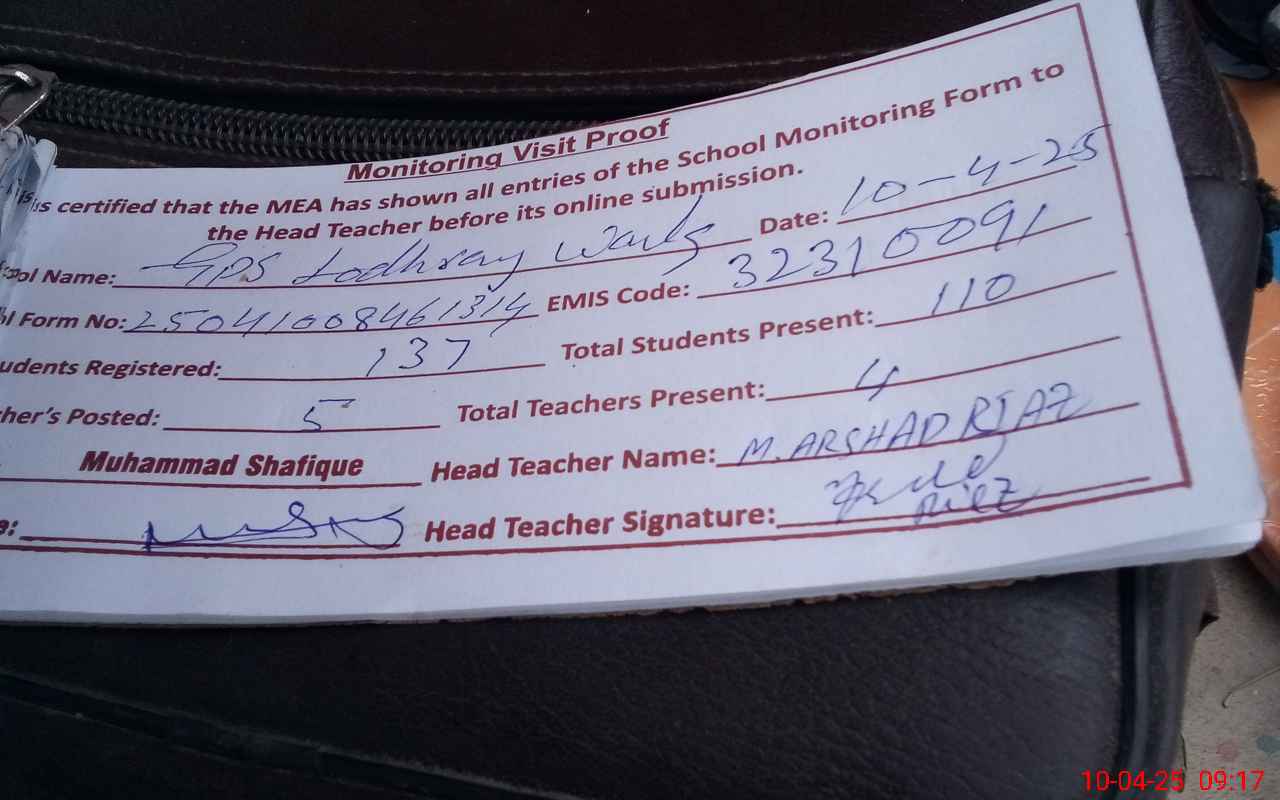 Monitoring Visit Proof
is certified that the MEA has shown all entries of the School Monitoring Form to
the Head Teacher before its online submission.
ol Name: GPS Lodhray Date: 10-4-25
l Form No: 25041008461314 EMIS Code: 32310091
udents Registered: 137 Total Students Present: 110
her's Posted: 5 Total Teachers Present: 4
Muhammad Shafique Head Teacher Name: M. ARSHAD RIAZ
e: Head Teacher Signature:
10-04-25 09:17